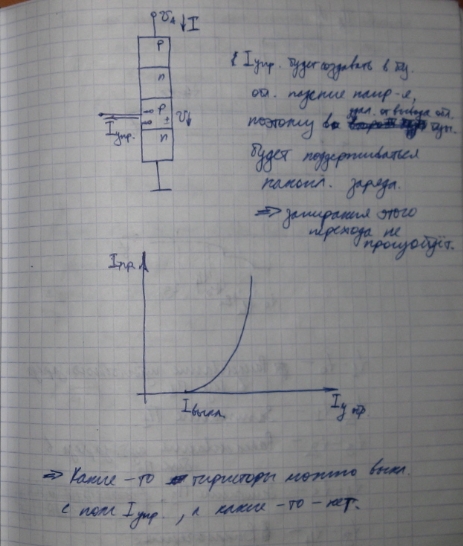 U_A ↓ I
p
n
p
n
I упр.
I упр. будет создавать в
падение напр-я,
поэтому в
будет поддерживаться
накопл. заряда.
=> запирания этого
перехода не
произойдёт.
I пр.
I выкл.
I у пр
=> Какие-то тиристоры можно выкл
с пом I упр., а какие-то - нет.